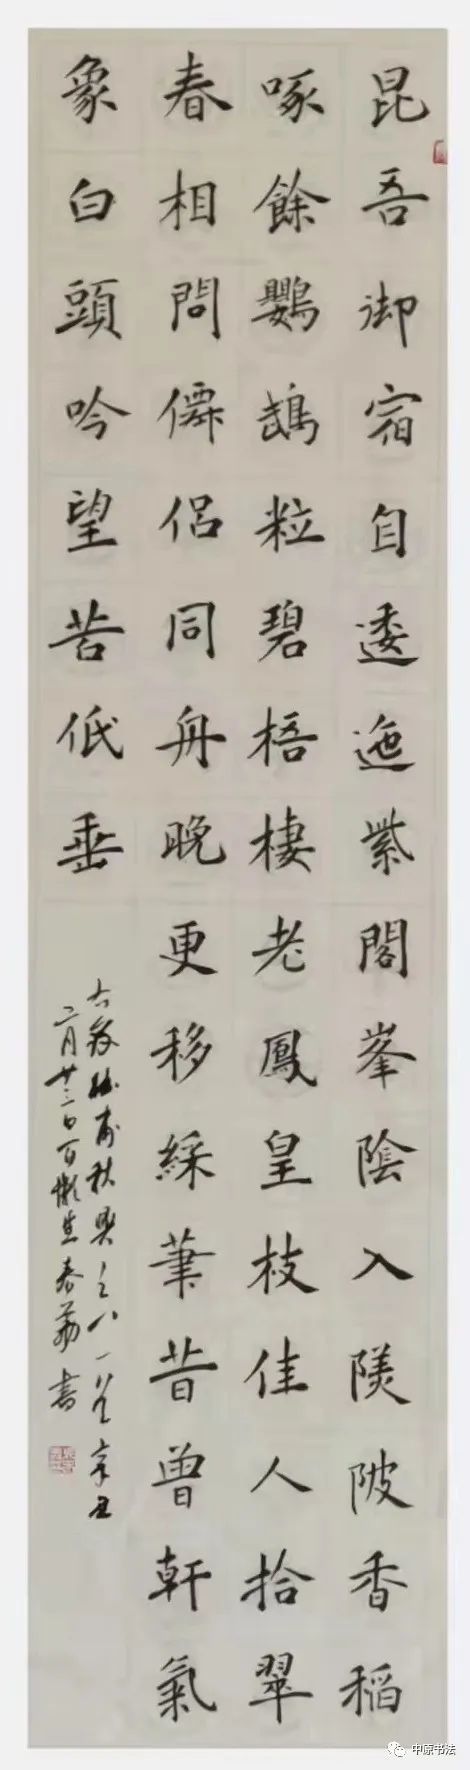 昆吾御宿自逶迤紫閣峯陰入渼陂香稻
啄餘鸚鵡粒碧梧棲老鳳皇枝佳人拾翠
春相問僊侶同舟晚更移綵筆昔曾軒氣
象白頭吟望苦低垂
右錄杜甫秋興之八一首辛丑
二月廿三日百生春書
中原书法